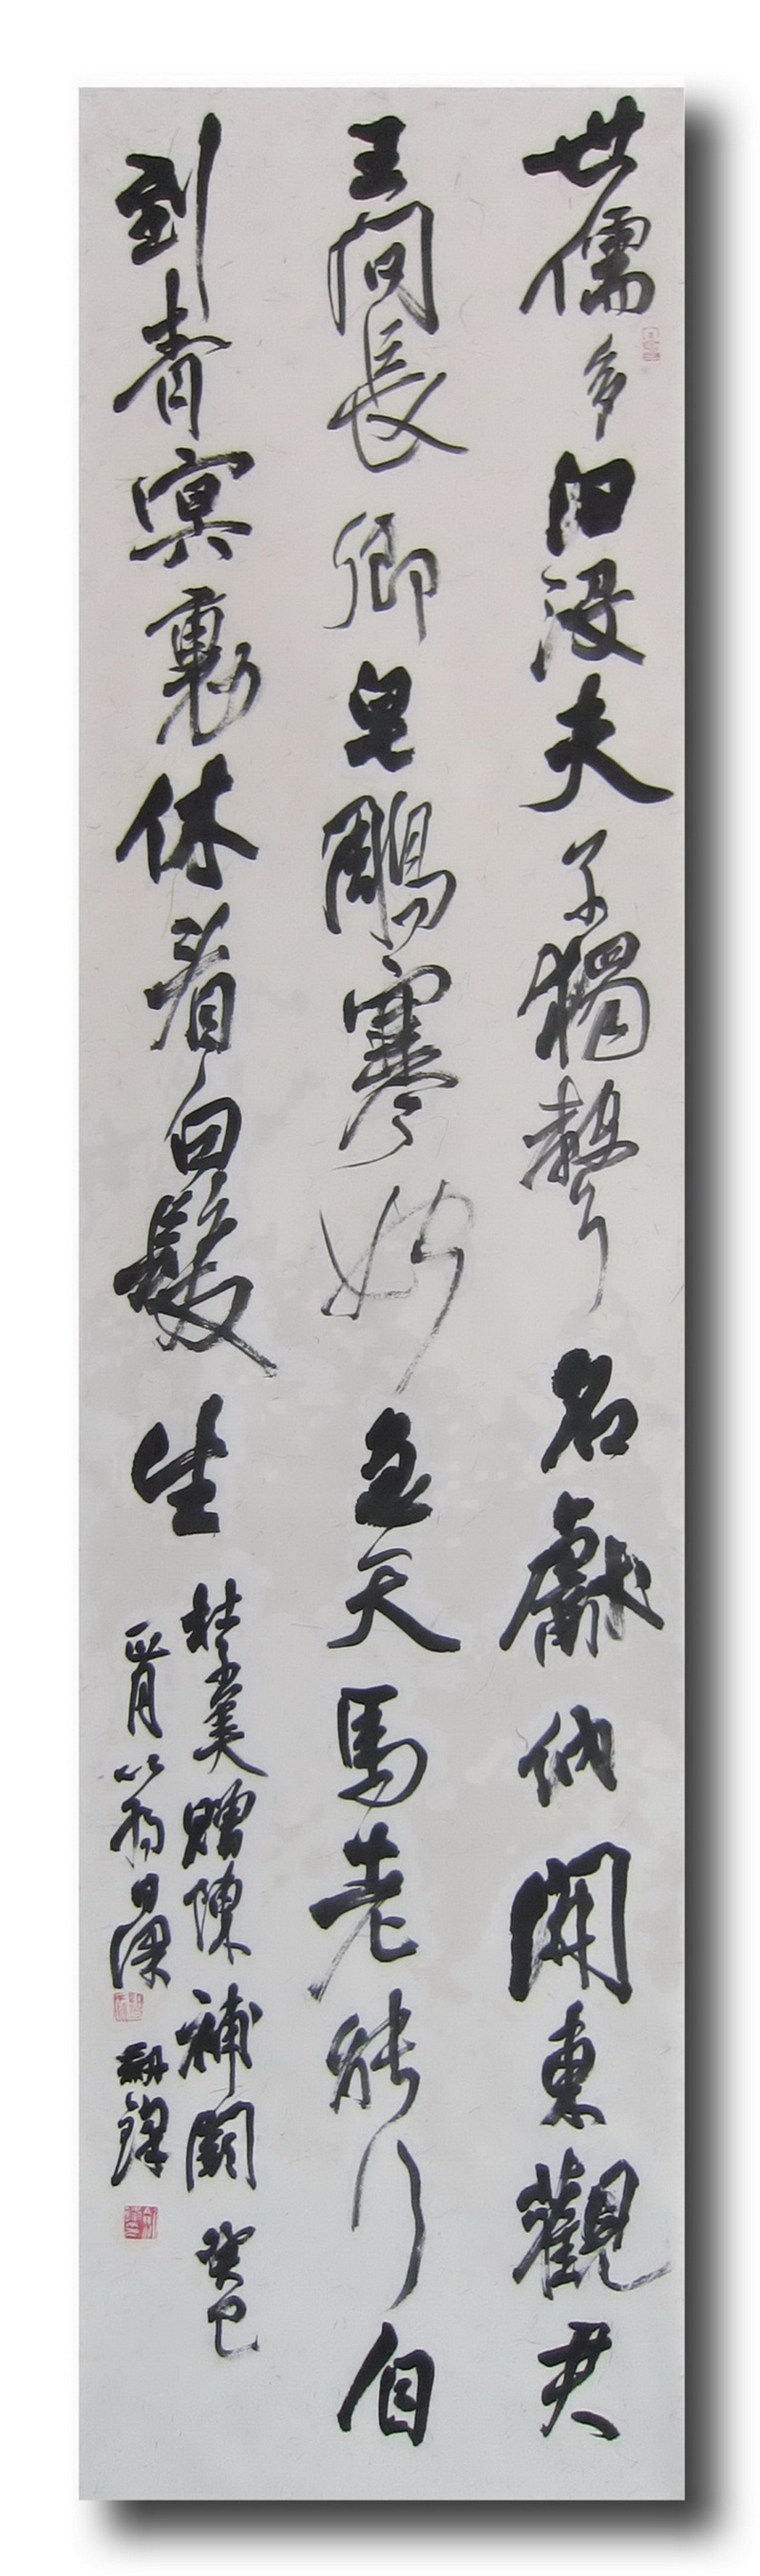 世儒多汩没夫子獨聲名獻納開東觀君
王問長卿皂鵰寒始急天馬老能行自
到青冥裏休看白髮生
杜子美贈陳補闕 癸巳